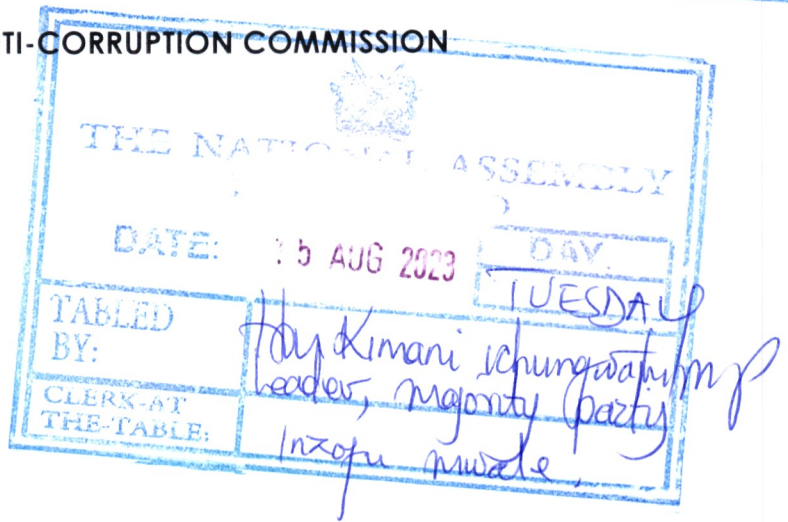 TI-CORRUPTION COMMISSION
THE NATIONAL ASSEMBLY
DATE: 15 AUG 2023 DAY.
TUESDAY
TABLED BY: Hon Kimani Ichungwah, MP
Leader, Majority Party
CLERK-AT THE-TABLE: Inzofu Mwale